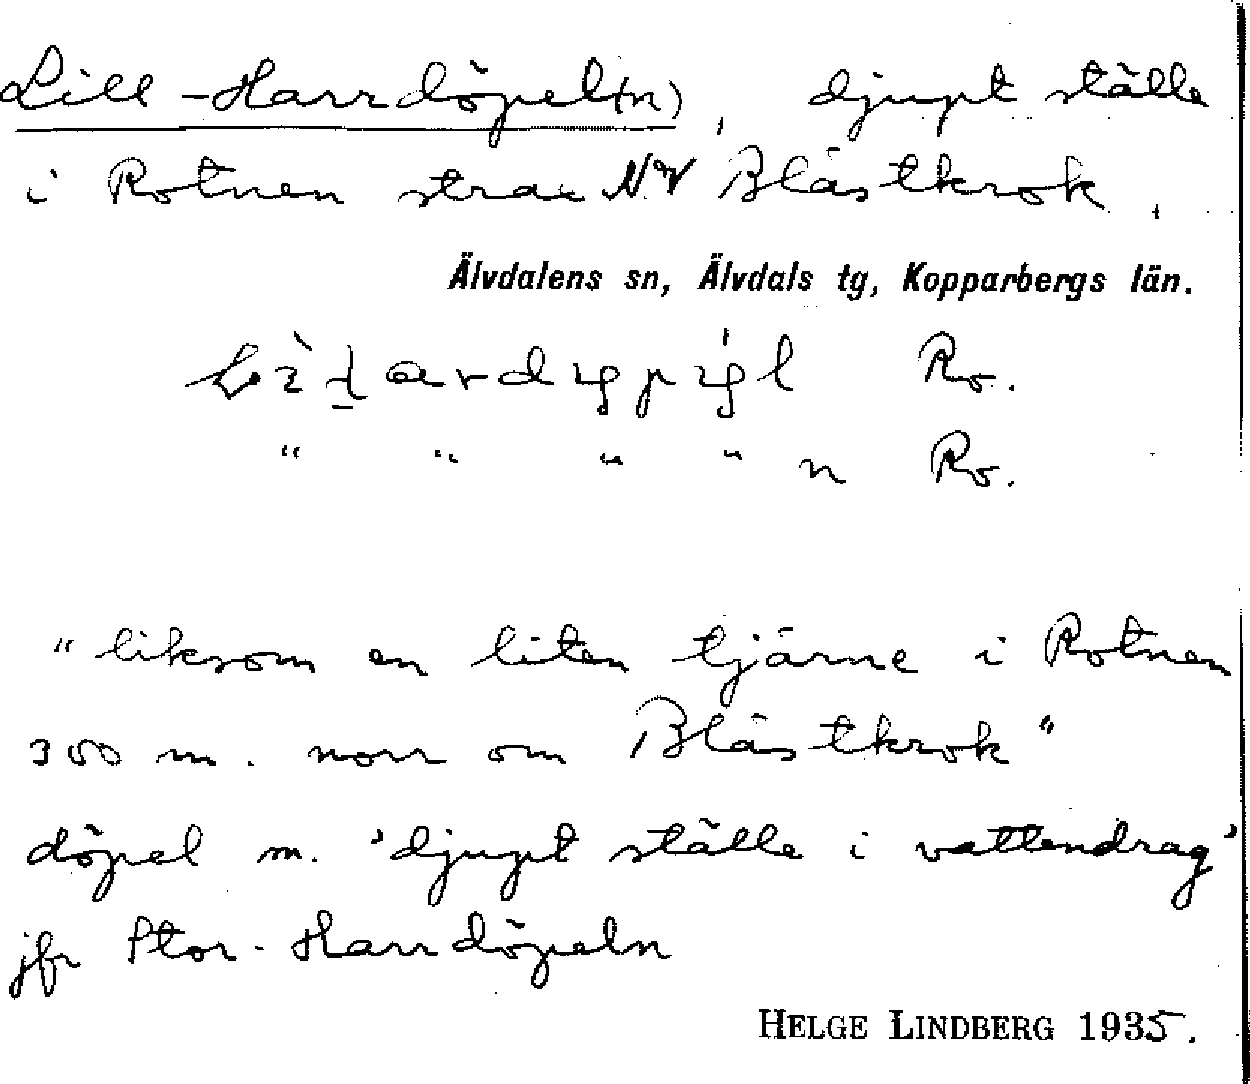 Lill-Harrdöpel(n), djupt ställe
i Rotnen strax NV Blåstkrok,
Älvdalens sn, Älvdals tg, Kopparbergs län.
Ro.
" " " " n Ro.
"liksom en liten tjärne i Rotnen
300 m. norr om Blåstkrok"
döpel m. 'djupt ställe i vattendrag'
jfr Stor-Harrdöpeln
HELGE LINDBERG 1935.